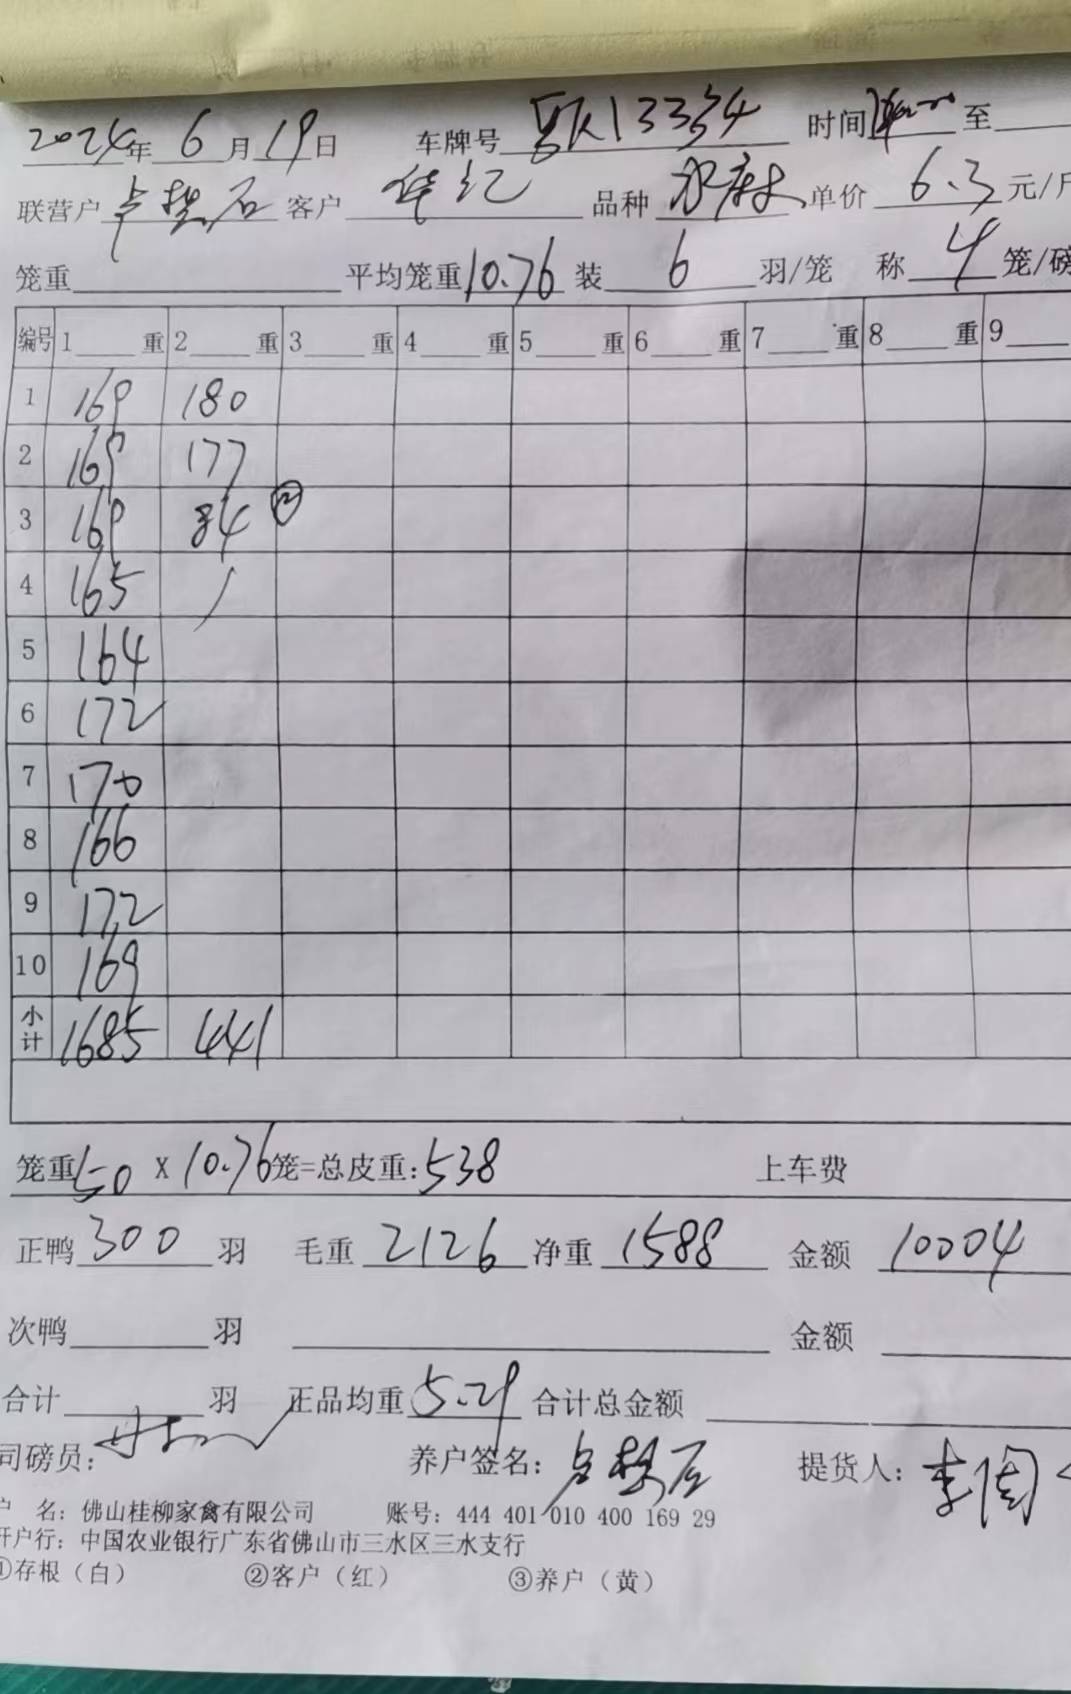 2024年 6月19日 车牌号 13334 时间 至
联营户 卢楚石 客户 华纪 品种 单价 6.3 元/斤
笼重 平均笼重10.76 装 6 羽/笼 称 4 笼/磅
编号 1 重 2 重 3 重 4 重 5 重 6 重 7 重 8 重 9
1 169 180
2 169 177
3 169 84 ②
4 165
5 164
6 172
7 170
8 166
9 172
10 169
小计 1685 441
笼重50 X 10.76笼=总皮重:538 上车费
正鸭 300 羽 毛重 2126 净重 1588 金额 10004
次鸭 羽 金额
合计 羽 正品均重 5.29 合计总金额
司磅员: 养户签名: 卢楚石 提货人: 李
户 名: 佛山桂柳家禽有限公司 账号: 444 401 010 400 169 29
开户行: 中国农业银行广东省佛山市三水区三水支行
①存根（白） ②客户（红） ③养户（黄）